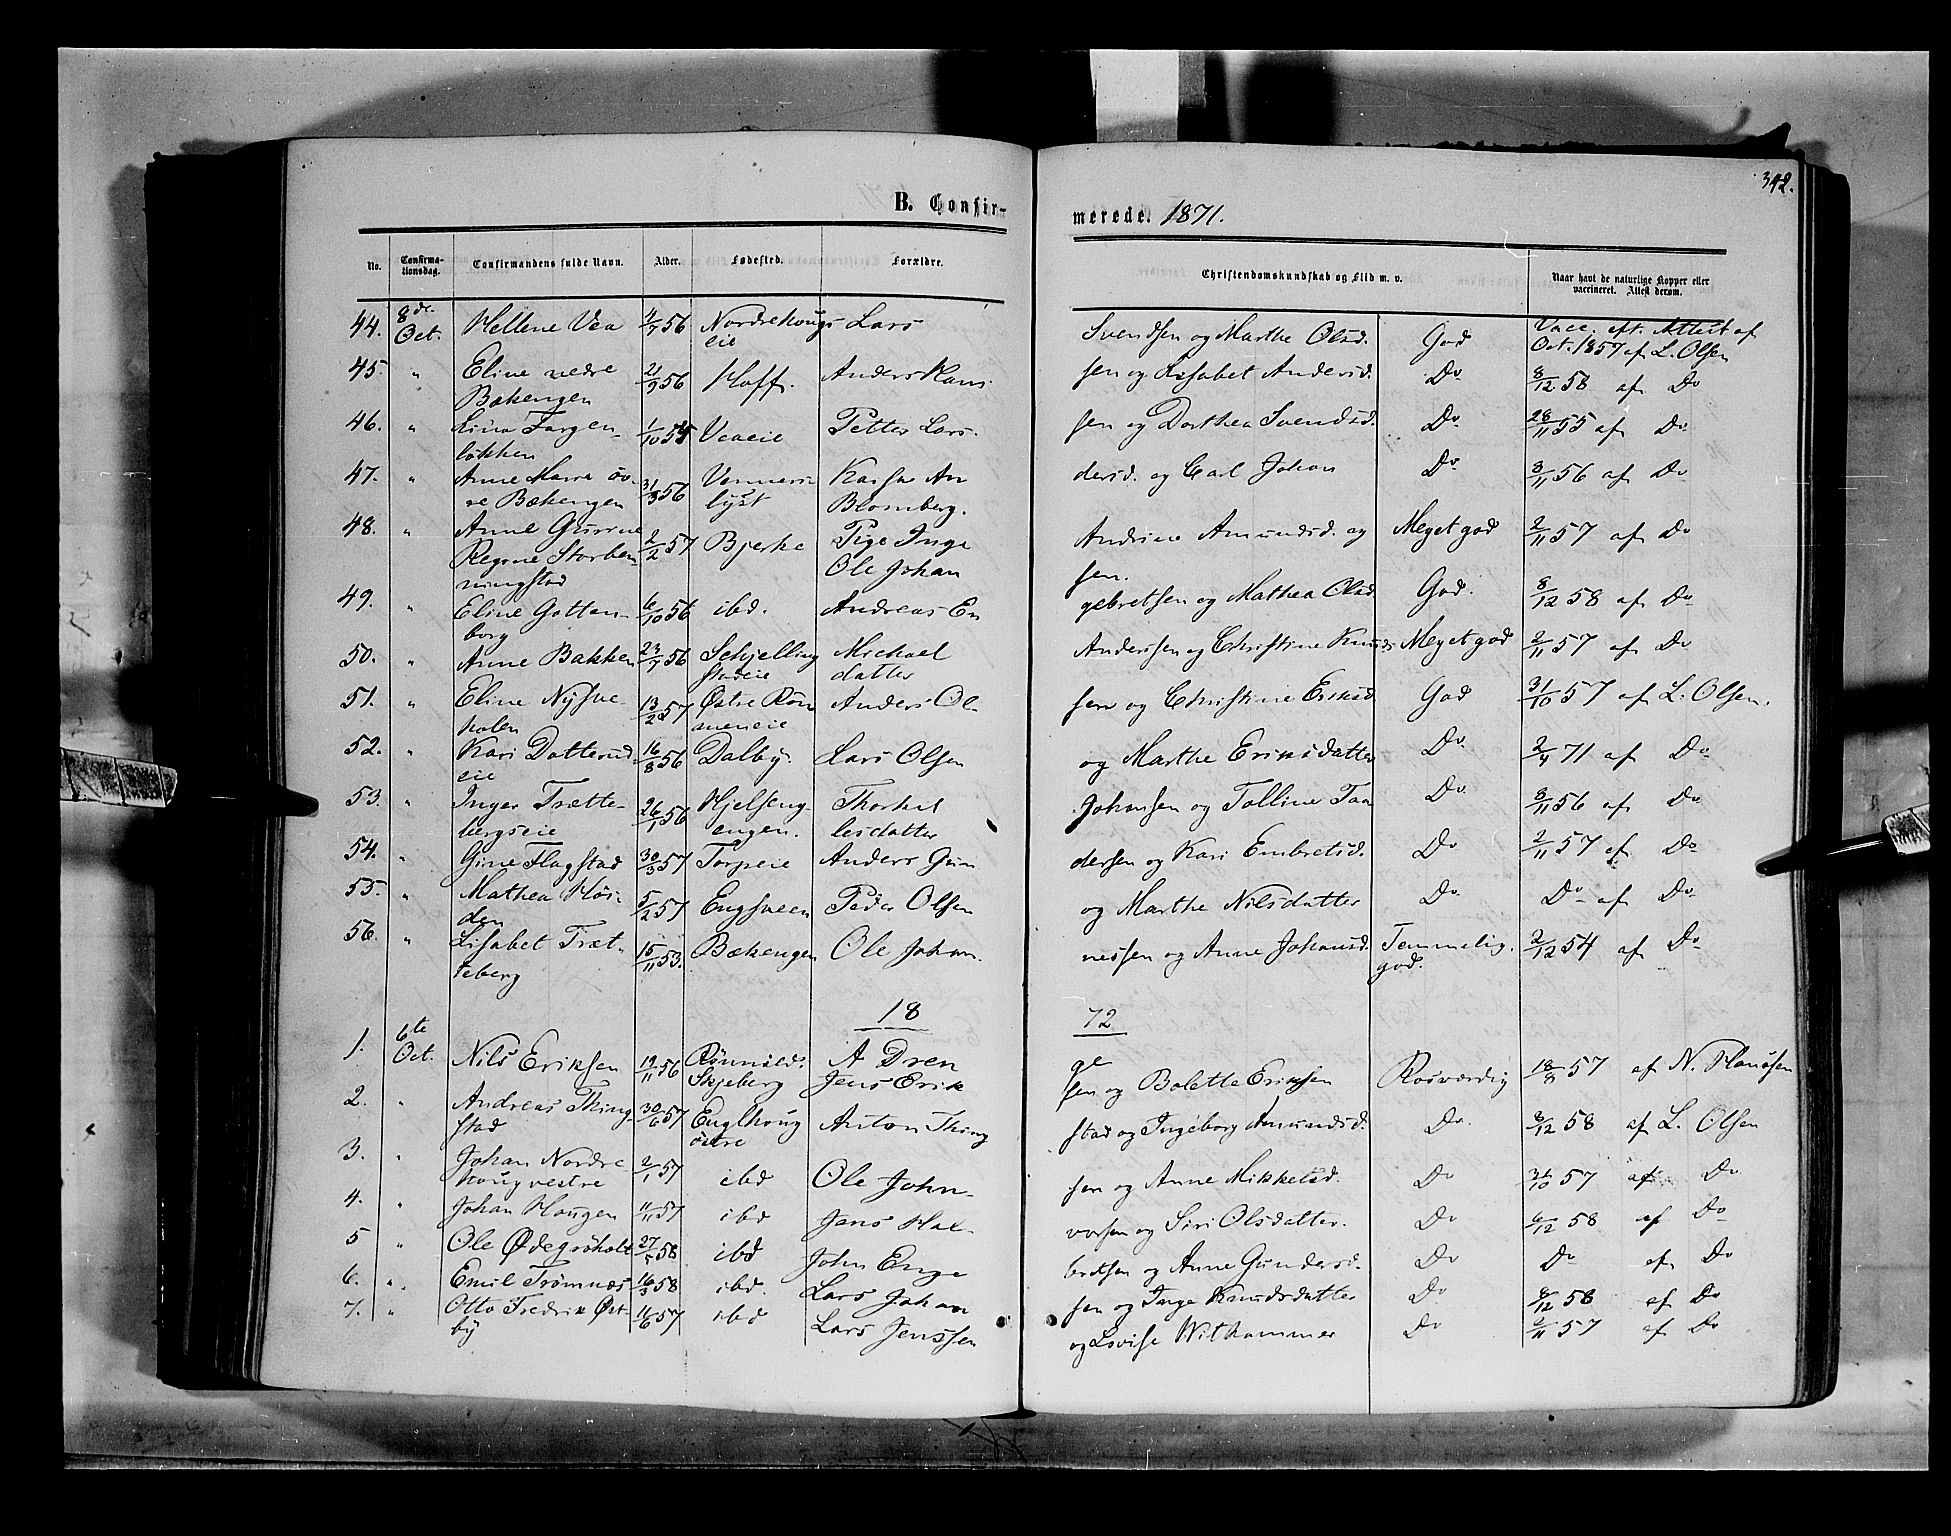 342.
B. Confirmerede. 1871.
No. Confirmationsdag. Confirmandens fulde Navn. Alder. Fødested. Forældre. Christendomskundskab og Flid m. v. Naar havt de naturlige Kopper eller vaccineret. Attest derom.
44. 8de Oct. Hellene Vea 1/7 56 Nordrekougs eie Lars Svendsen og Marthe Olsd. God Vacc. eft. Attest af Oct. 1857 af L. Olsen
45. " Eline nedre Bækengen 21/9 56 Hoff. Anders Hansen og Lisabet Andersd. Do 8/12 58 af Do
46. " Lina løkken 1/10 55 Veaeie Petter Larssen og Dorthea Svendsd. Do 28/11 55 af Do
47. " Anne øvre Bækengen 31/3 56 Vennerslyst Karsa Andersd. og Carl Johan Blomberg. Do 8/11 56 af Do
48. " Anne Gurine Regine Storbenningstad 2/2 57 Bjerke Pige Inge Andrine Amundsd. og Ole Johansen. Meget god 2/11 57 af Do
49. " Eline Gottenborg 6/10 56 ibd. Andreas Engebretsen og Mathea Olsd. God. 8/12 58 af Do
50. " Anne Bakken 23/7 56 Schjellingstadeie Michael Anderssen og Christine Knudsdatter Meget god 2/11 57 af Do
51. " Eline Nysveholen 13/2 57 Østre Rønneneie Anders Olsen og Christine Eriksd. God 31/10 57 af L. Olsen.
52. " Kari Dotterudeie 16/8 56 Dalby. Lars Olsen og Marthe Eriksdatter Do 2/4 71 af Do
53. " Inger Trættebergseie 26/1 56 Hjelsengengen. Thorkel Johansen og Tolline Taalesdatter Do 8/11 56 af Do
54. " Gine Flagstad 30/3 57 Torpeie Anders Gundersen og Kari Embretsd. Do 2/11 57 af Do
55. " Mathea Høiden 5/2 57 Engsveen Peder Olsen og Marthe Nilsdatter Do Do af Do
56. " Lisabet Trætteberg 15/11 53. Bækengen Ole Johannessen og Anne Johansd. Temmelig god. 2/12 54 af Do
1872
A Drenge
1. 6te Oct. Nils Eriksen 19/11 56 Skjeberg Jens Eriksen og Bolette Eriksen Rosværdig 18/8 57 af N. Hansen
2. " Andreas Thingstad 30/6 57 Englhoug østre Anton Thingstad og Ingeborg Amundsd. Do. 8/12 58 af L. Olsen
3. " Johan Nordre kougvestre 2/1 57 ibd Ole Johnsen og Anne Mikkelsd. Do 31/10 57 af Do
4. " Johan Haugen 11/11 57 ibd Jens Halvorsen og Siri Olsdatter. Do 6/12 58 af Do
5 " Ole Ødegrøholt 58 ibd John Engebretsen og Anne Gundersd. Do Do af Do
6. " Emil Trømnæs 16/3 58 ibd. Lars Johansen og Inge Knudsdatter Do 8/12 58 af Do
7. " Otto Fredrik Østby 11/6 57 ibd Lars Jenssen og Lovise Withammer Do 2/11 57 af Do